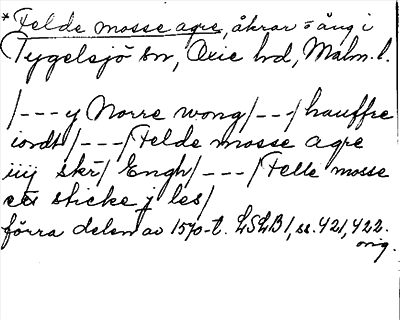 *Felde mosse agre, åkrar o äng i
Tygelsjö sn, Oxie hd, Malm. l.
/---y Norre wong/---/hauffre
iordt/---/Felde mosse agre
iiij skr/ Engh/---/Felle mosse
ett sticke j les/
förra delen av 1570-t. LSLB 1, ss. 421, 422.
orig.